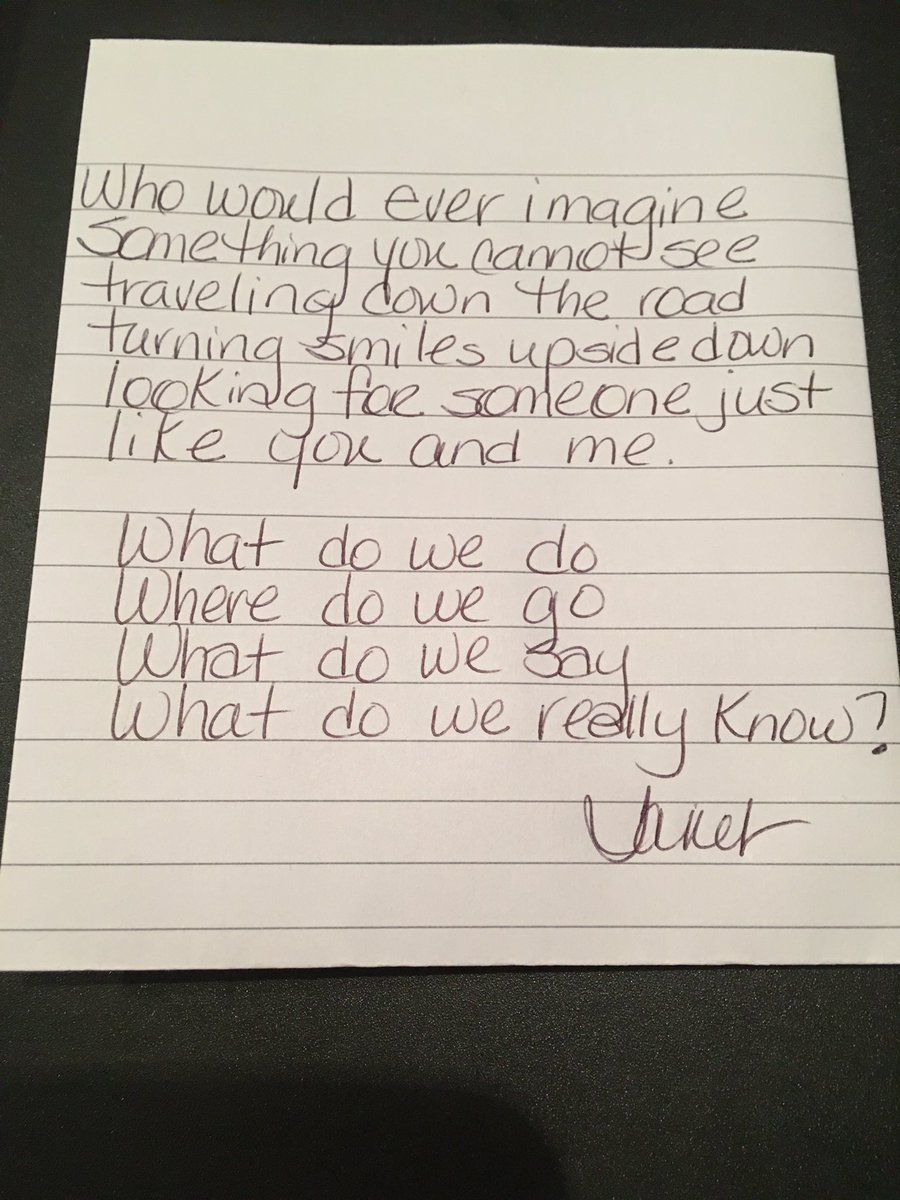 Who would ever imagine
Something you cannot see
traveling down the road
turning smiles upside down
looking for someone just
like you and me.
What do we do
Where do we go
What do we say
What do we really know?
Janet